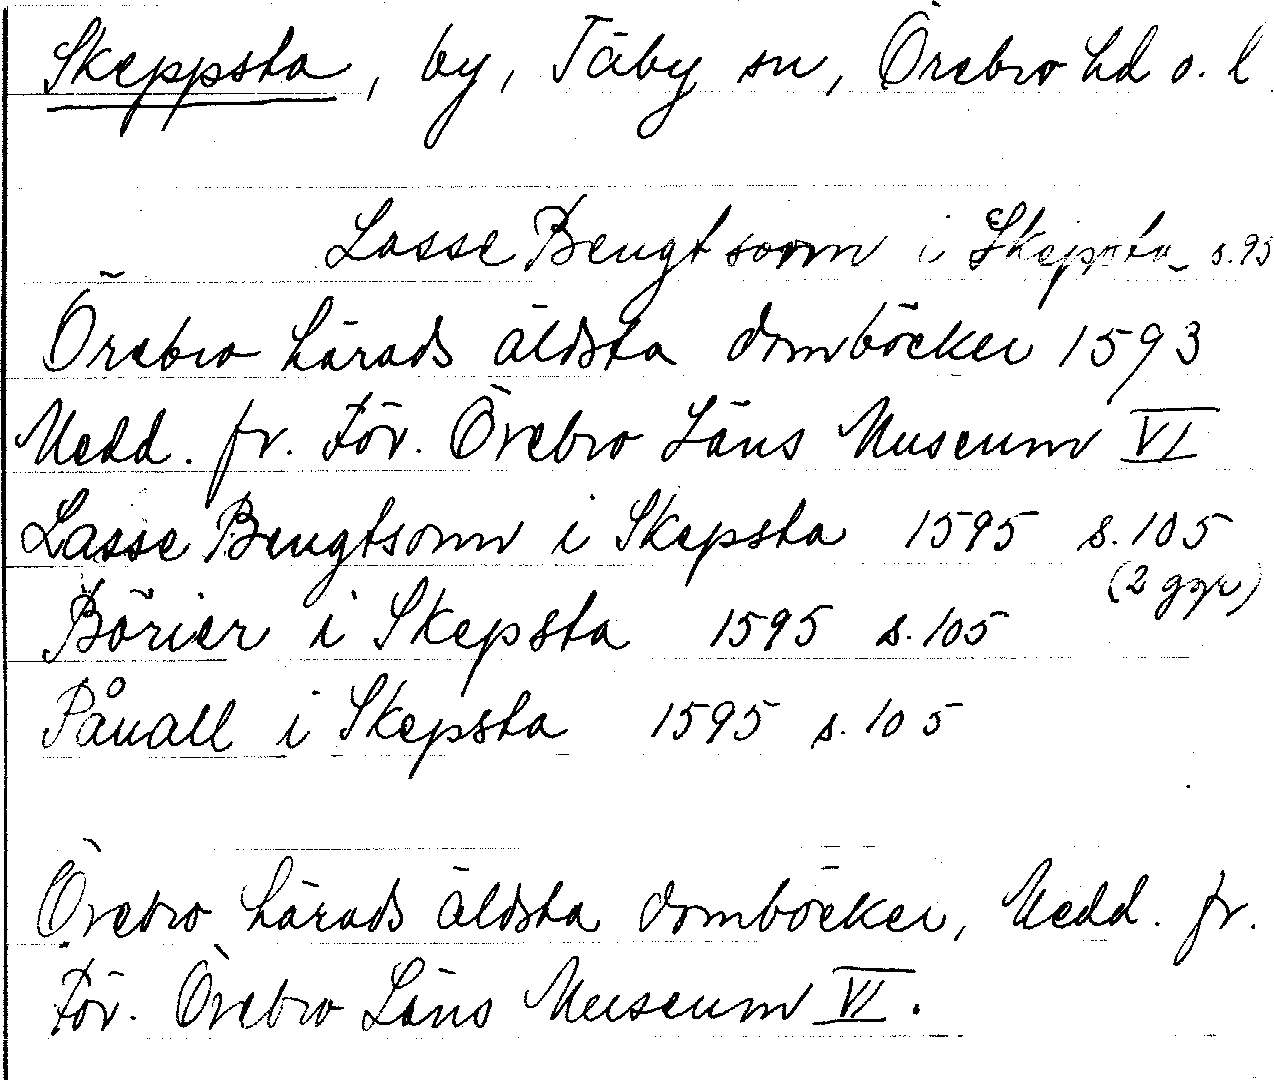 Skeppsta, by, Täby sn, Örebro hd o. l
Lasse Bengtsonn i Skepsta s.95
Örebro härads äldsta domböcker 1593
Medd. fr. För. Örebro Läns Museum VI
Lasse Bengtsonn i Skepsta 1595 s.105
(2 ggr)
Börier i Skepsta 1595 s.105
Påuall i Skepsta 1595 s.105
Örebro härads äldsta domböcker, Medd. fr.
För. Örebro Läns Museum VI.